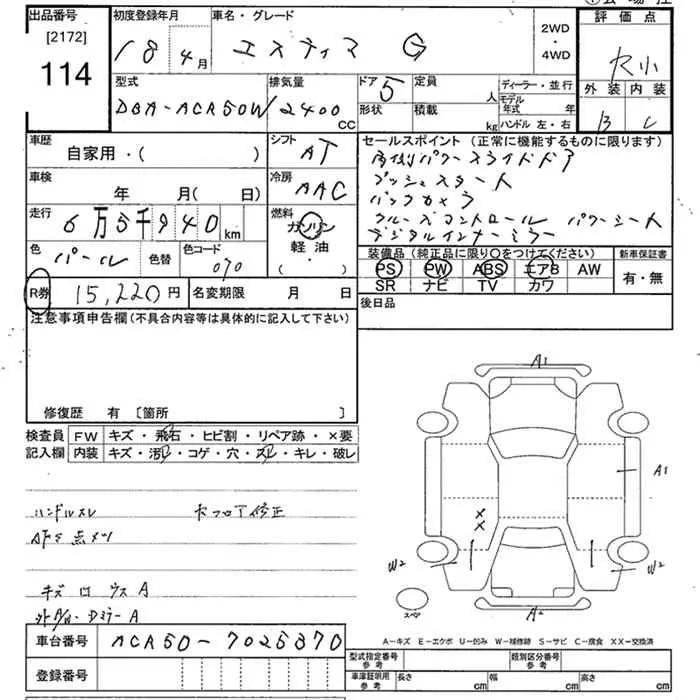 出品番号
[2172]
114
初度登録年月
18年4月
車名・グレード
エスティマ G
2WD
・
4WD
評価点
R小
外装 内装
B C
型式
DBA-ACR50W
排気量
2400
cc
ドア 5
形状
定員
人
積載
kg
ディーラー・並行
モデル年式 年
ハンドル 左・右
車歴
自家用・( )
シフト
AT
セールスポイント (正常に機能するものに限ります)
両側パワースライドドア
プッシュスタート
バックカメラ
クルーズコントロール パワーシート
デジタルインナーミラー
車検
年 月(日)
冷房
AAC
走行
6万5千940km
燃料
ガソリン
軽油
( ・ )
色
パール
色替
色コード
070
装備品 (純正品に限り○をつけてください)
PS PW ABS エアB AW
SR ナビ TV カワ
新車保証書
有・無
R券
15,220円
名変期限 月 日
後日品
注意事項申告欄 (不具合内容等は具体的に記入して下さい)
修復歴 有 〔箇所 〕
検査員
記入欄
FW キズ・飛石・ヒビ割・リペア跡・×要
内装 キズ・汚・コゲ・穴・スレ・キレ・破レ
ハンドルスレ
キズ
A
A
車台番号
ACR50-7025370
登録番号
A1
A1
XX
W2
W2
A2
スペア
A-キズ E-エクボ U-凹み W-補修跡 S-サビ C-腐食 XX-交換済
型式指定番号
参考
類別区分番号
参考
車庫証明用
参考
長さ
cm
幅
cm
高さ
cm